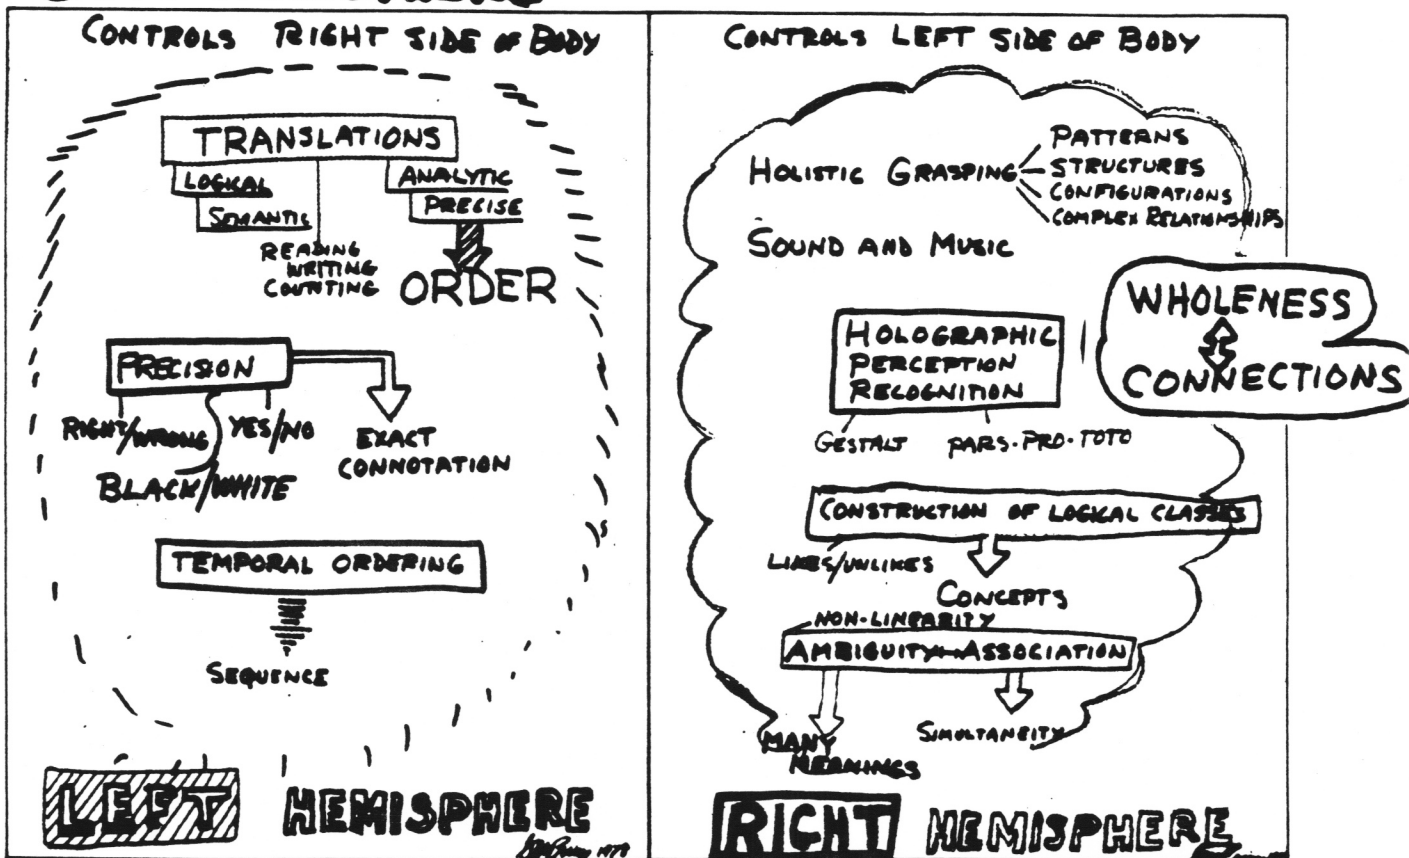 CONTROLS RIGHT SIDE OF BODY
TRANSLATIONS
LOGICAL
SEMANTIC
ANALYTIC
PRECISE
READING
WRITING
COUNTING
ORDER
PRECISION
RIGHT/WRONG
YES/NO
BLACK/WHITE
EXACT
CONNOTATION
TEMPORAL ORDERING
SEQUENCE
LEFT HEMISPHERE
1978
CONTROLS LEFT SIDE OF BODY
HOLISTIC GRASPING
PATTERNS
STRUCTURES
CONFIGURATIONS
COMPLEX RELATIONSHIPS
SOUND AND MUSIC
WHOLENESS
CONNECTIONS
HOLOGRAPHIC
PERCEPTION
RECOGNITION
GESTALT
PARS-PRO-TOTO
CONSTRUCTION OF LOGICAL CLASSES
LIKES/UNLIKES
CONCEPTS
NON-LINEARITY
AMBIGUITY-ASSOCIATION
MANY
MEANINGS
SIMULTANEITY
RIGHT HEMISPHERE